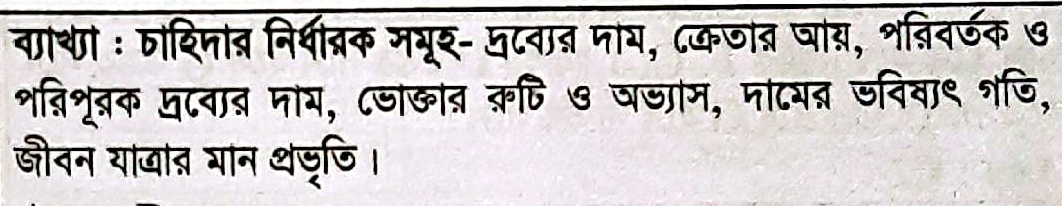 ব্যাখ্যা : চাহিদার নির্ধারক সমূহ- দ্রব্যের দাম, ক্রেতার আয়, পরিবর্তক ও
পরিপূরক দ্রব্যের দাম, ভোক্তার রুচি ও অভ্যাস, দামের ভবিষ্যৎ গতি,
জীবন যাত্রার মান প্রভৃতি ।